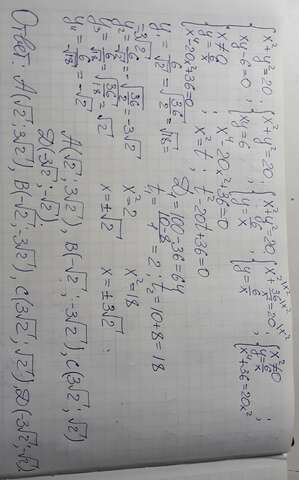 {x²+y²=20; {x²+y²=20; {x²+y²=20; {x²+36/x²=20; {x≠0
{xy-6=0; {xy=6; {y=6/x; {y=6/x; {y=6/x
{x⁴+36=20x²;
{x≠0
{y=6/x
{x⁴-20x²+36=0 x⁴-20x²+36=0
x²=t; t²-20t+36=0
D₁=100-36=64
t₁=10-8/1=2; t₂=10+8=18
x²=2 x²=18
x=±√2 x=±3√2.
y₁=6/√2=√36/2=√18=
=3√2
y₂=-6/√2=-√36/2=-3√2
y₃=6/√18=√36/18=√2
y₄=-6/√18=-√2
A(√2; 3√2), B(-√2; -3√2), C(3√2; √2)
D(-3√2; -√2)
Ответ: A(√2; 3√2); B(-√2; -3√2), C(3√2; √2), D(-3√2; -√2).